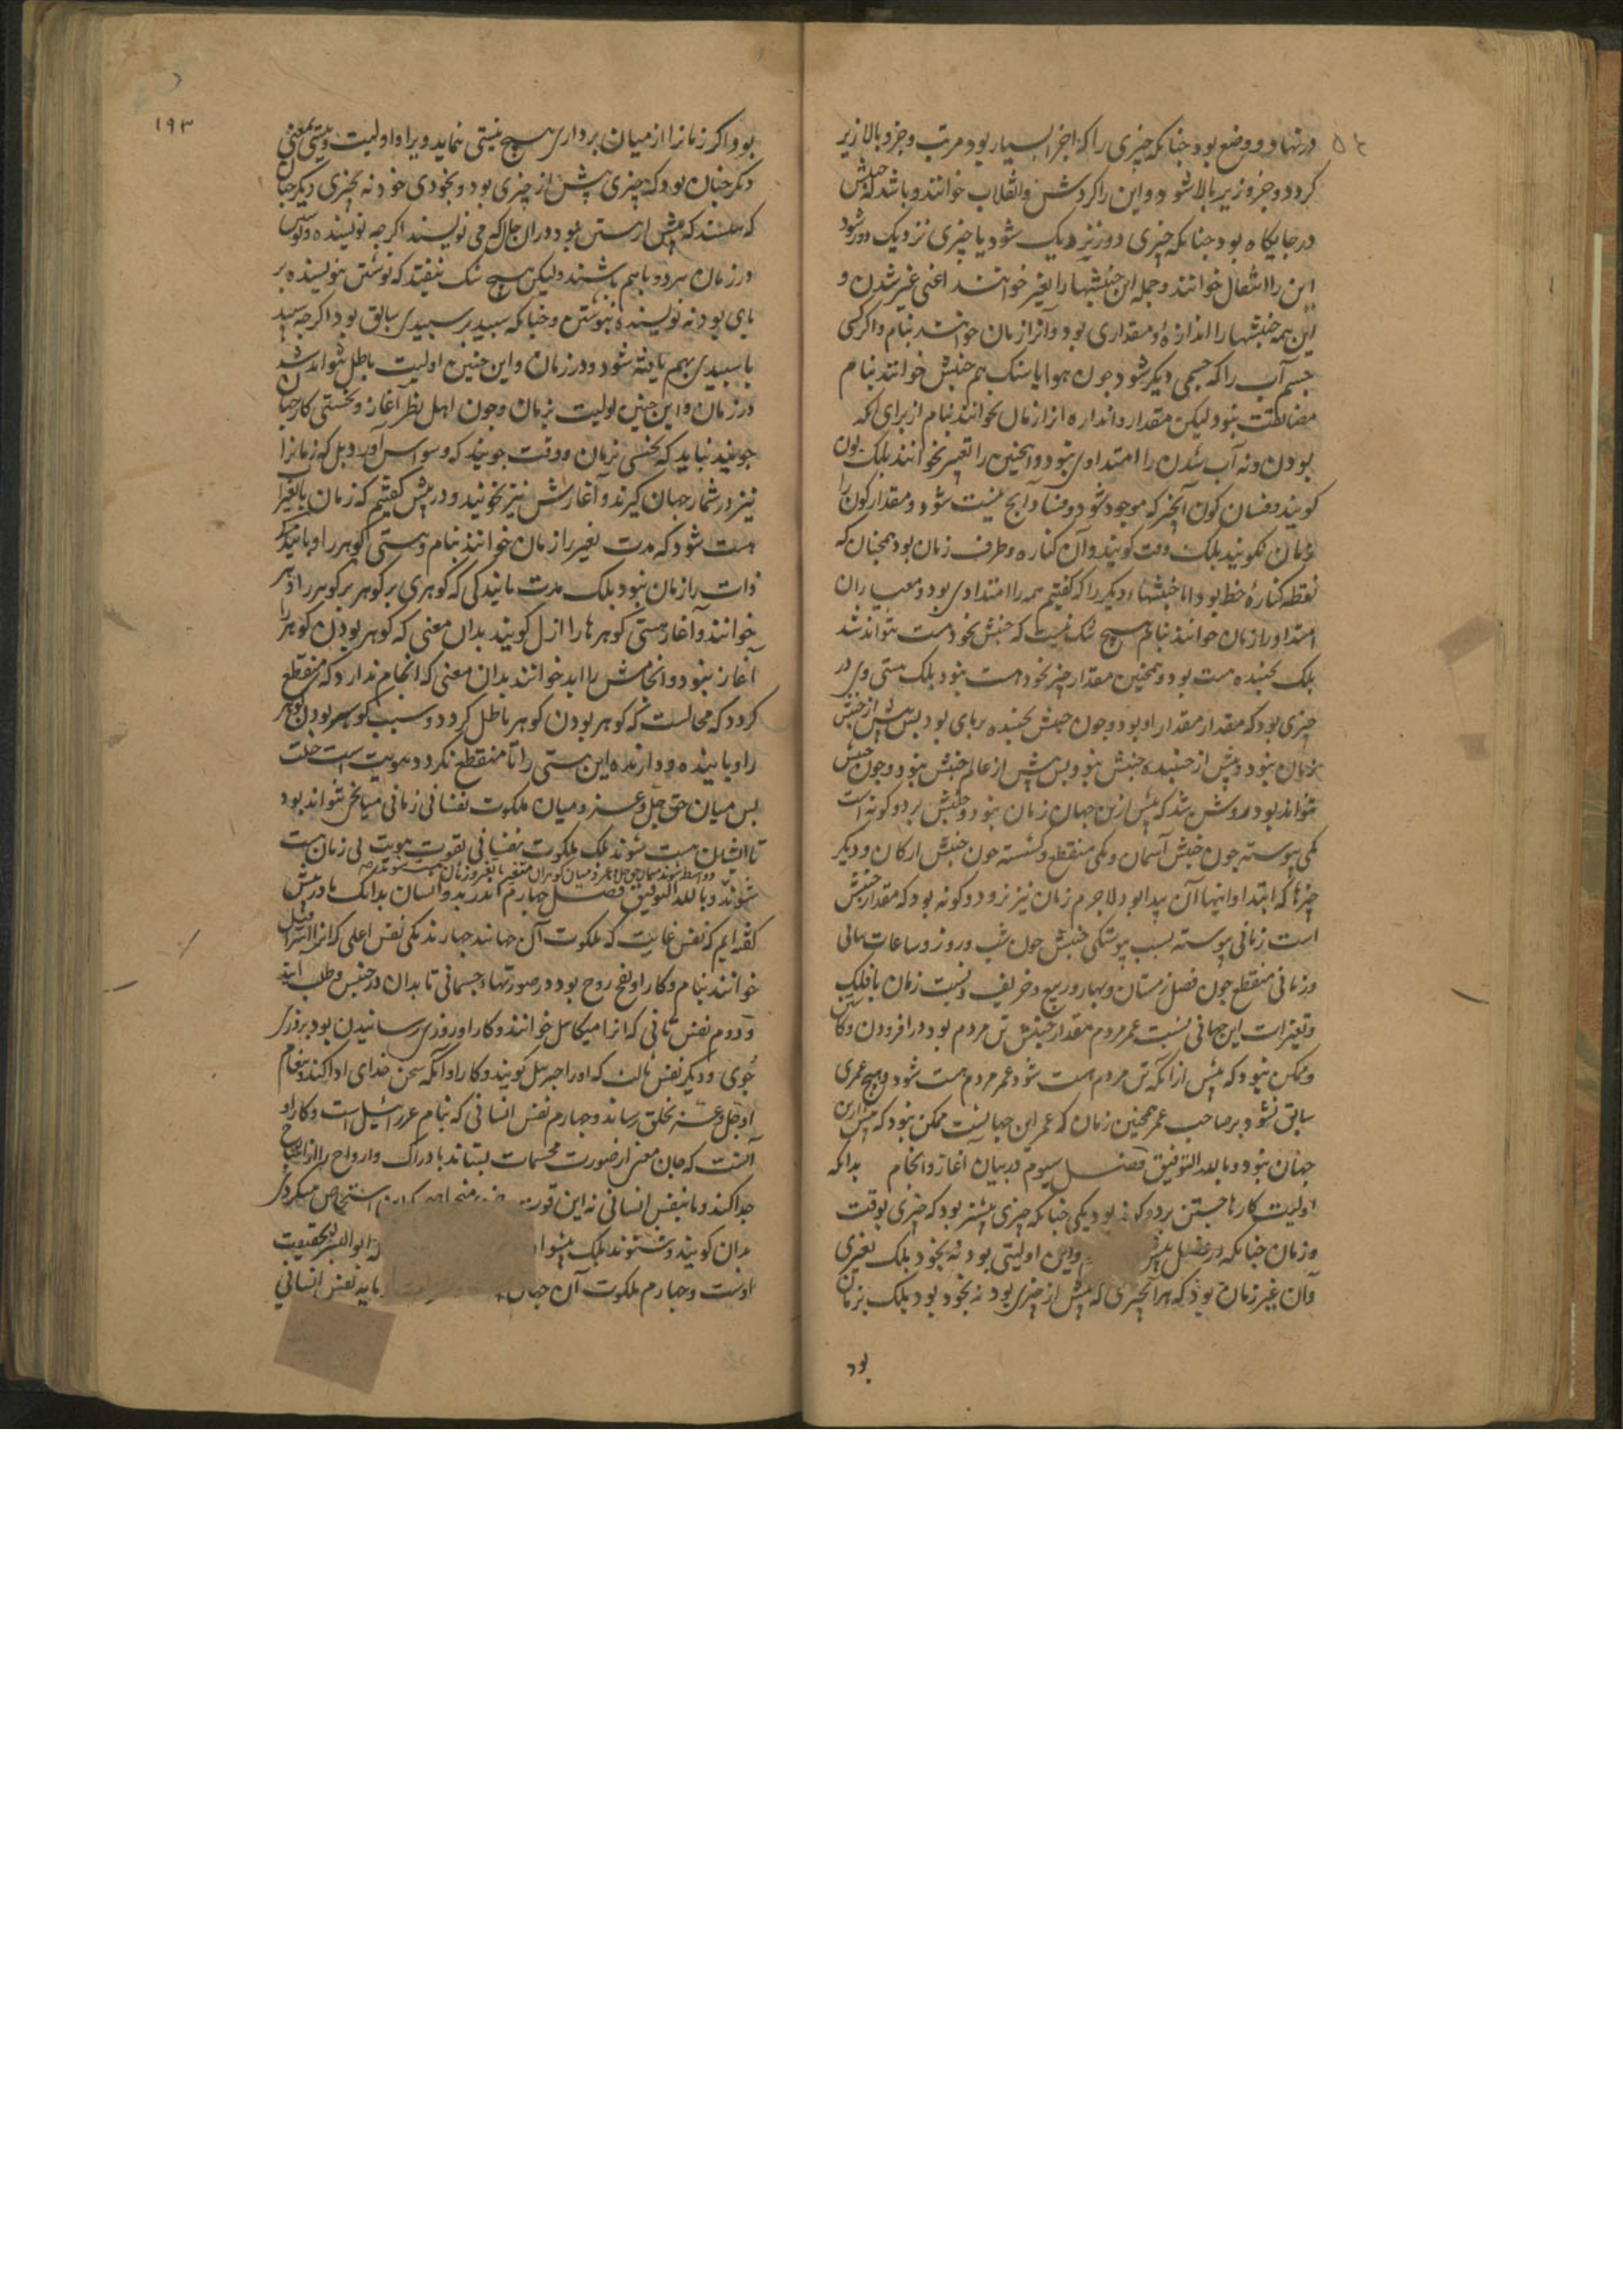 در نهاد و وضع بود چنانکه چیزی را که اجزا بسیار بود مرتب و جزو بالا زیر
کردد و جزو زیر بالا شود و این را کردش و انقلاب خوانند و باشد که جنبش
در جایکاه بود چنانکه چیزی دور نزدیک شود یا چیزی نزدیک دور شود
این را انتقال خوانند و جمله این جنبشها را تغیر خوانند اعنی غیر شدن و
این همه جنبشها را اندازه و مقداری بود و آنرا زمان خوانند بنام و اکر کسی
جسم آب را که جسمی دیکر شود چون هوا یا سنک هم جنبش خوانند بنام
مضایقتت نبود لیکن مقدار و اندازه آنرا زمان نخوانند بنام از برای آنکه
بودن و نه آب شدن را امتدادی نبود و همچنین را تغیر نخوانند بلک کون
کویند و فساد کون آنچیز که موجود شود و فساد آنچ نیست شود و مقدار کون را
زمان نکویند بلک وقت کویند و آن کناره و طرف زمان بود همچنان که
نقطه کناره خط بود اما جنبشهاء دیکر را که کفتیم همه را امتدادی بود و معیار آن
امتداد را زمان خوانند بنام هیچ شک نیست که جنبش بخود هست نتواند شد
بلک بجنبده هست بود و همچنین مقدار چیز بخود هست نبود بلک هستی وی در
چیزی بود که مقدار مقدار او بود و چون جنبش بجنبده برپای بود پس پیش از جنبش
زمان نبود و پیش از جنبیده جنبش نبود پس پیش از عالم جنبش نبود و چون جنبش
نتواند بود روشن شد که پیش ازین جهان زمان نبود و جنبش بر دو کونه است
یکی پیوسته چون جنبش آسمان و یکی منقطع و کسسته چون جنبش ارکان و دیکر
چیزها که ابتدا و انتهاآن پیدا بود لاجرم زمان نیز بر دو کونه بود که مقدار جنبش
است زمانی پیوسته بسبب پیوستکی جنبش چون شب و روز و ساعات
و زمانی منقطع چون فصل زمستان و بهار و ربیع و خریف و نسبت زمان با فلک
و تغیرات این جهانی نسبت عمر مردم مقدار جنبش تن مردم بود در افزودن و کاستن
و ممکن نبود که پیش از آنکه تن مردم هست شود عمر مردم هست شود و هیچ عمری
سابق نشود بر صاحب عمر همچنین زمان که عمر این جهانیست ممکن نبود که پیش ازین
جهان بود و بالله التوفیق فصل سیوم در بیان آغاز و انجام بدانکه
اولیت کارها جستن بر دو کونه بود یکی چنانکه چیزی پیشتر بود که چیزی بوقت
و زمان چنانکه و این اولیتی بود نه بخود بلک بغیری
وآن غیر زمان بود که هر آنچیزی که پیش از چیزی بود نه بخود بود بلک بزمان
بود
۱۹۳
بود اکر زمانرا از میان برداری هیچ نیستی نماید ویرا و اولیت و پیشی بمعنی
دکر چنان بود که چیزی پیش از چیزی بود و بخودی خود نه بچیزی دیکر چنان
که اکرچه نویسنده و نوشتن
در زمان هر دو با هم باشند ولیکن هیچ شک نیفتد که نوشتن بنویسنده بر
پای بود نه نویسنده بنوشتن و چنانکه سپید بر سپیدی سابق بود اکرچه سپید
با سپیدی بهم یافته شود و در زمان و این چنین اولیت باطل نتواند شد
در زمان و این چنین اولیت بزمان و چون اهل نظر آغاز و نخستی کار جهان
جویند نباید که نخستی بزمان و وقت جویند که وسواس آورد بل که زمانرا
نیز در شمار جهان کیرند و آغازش نیز بجویند و در پیش کفتیم که زمان با تغیرات
هست شود که مدت تغیر را زمان خوانند بنام و هستی کوهر را و پایندکی
ذات را زمان نبود بلک مدت پایندکی که کوهری بر کوهر را دهر
خوانند و آغاز هستی کوهرها را ازل کویند بدان معنی که کوهر بودن کوهر را
آغاز نبود و انجامش را ابد خوانند بدان معنی که انجام ندارد که منقطع
کردد که محالست که کوهر بودن کوهر باطل کردد و سبب کوهر بودن کوهر
را و پاینده و دارنده این هستی را تا منقطع نکردد هویت است جلت
پس میان حق جل و عز و میان ملکوت نفسانی زمانی میانجی نتواند بود
تا ایشان هست شوند بلک ملکوت نفسانی بقوت هویت بی زمان هست
شوند و بالله التوفیق فصل چهارم اندر بدو انسان بدانک ما در پیش
کفته ایم که نفس غایت که ملکوت آن جهانند چهارند یکی نفس اعلی که آنرا اسرافیل
خوانند بنام و کار او نفخ روح بود در صورتهاء جسمانی تا بدان در جنبش و طلب آیند
و دوم نفس ثانی که آنرا میکائیل خوانند و کار او روزی رسانیدن بود بروزی
جوی و دیکر نفس ثالث که او را جبرئیل کویند و کار او آنکه سخن خدای ادا کند و پیغام
او جل و عز بخلق رساند و چهارم نفس انسانی که بنام عزرائیل است و کار او
آنست که جان معنی از صورت مجسمات بستاند بادراک و ارواح را از اشباح
جدا کند و ما بنفس انسانی نه این قوت
بدان کویند و شنوند بلک ابوالبشر بحقیقت
اوست و چهارم ملکوت آن جهان مایه نفس انسانی